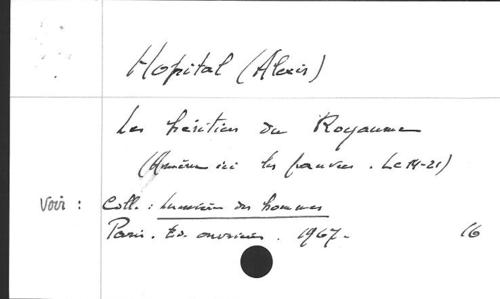 Hopital (Alexis)
Les héritiers du Royaume
(Amène ici les pauvres. Lc 14-21)
Voir : Coll. : Lumière des hommes
Paris. Ed. ouvrières. 1967- 16